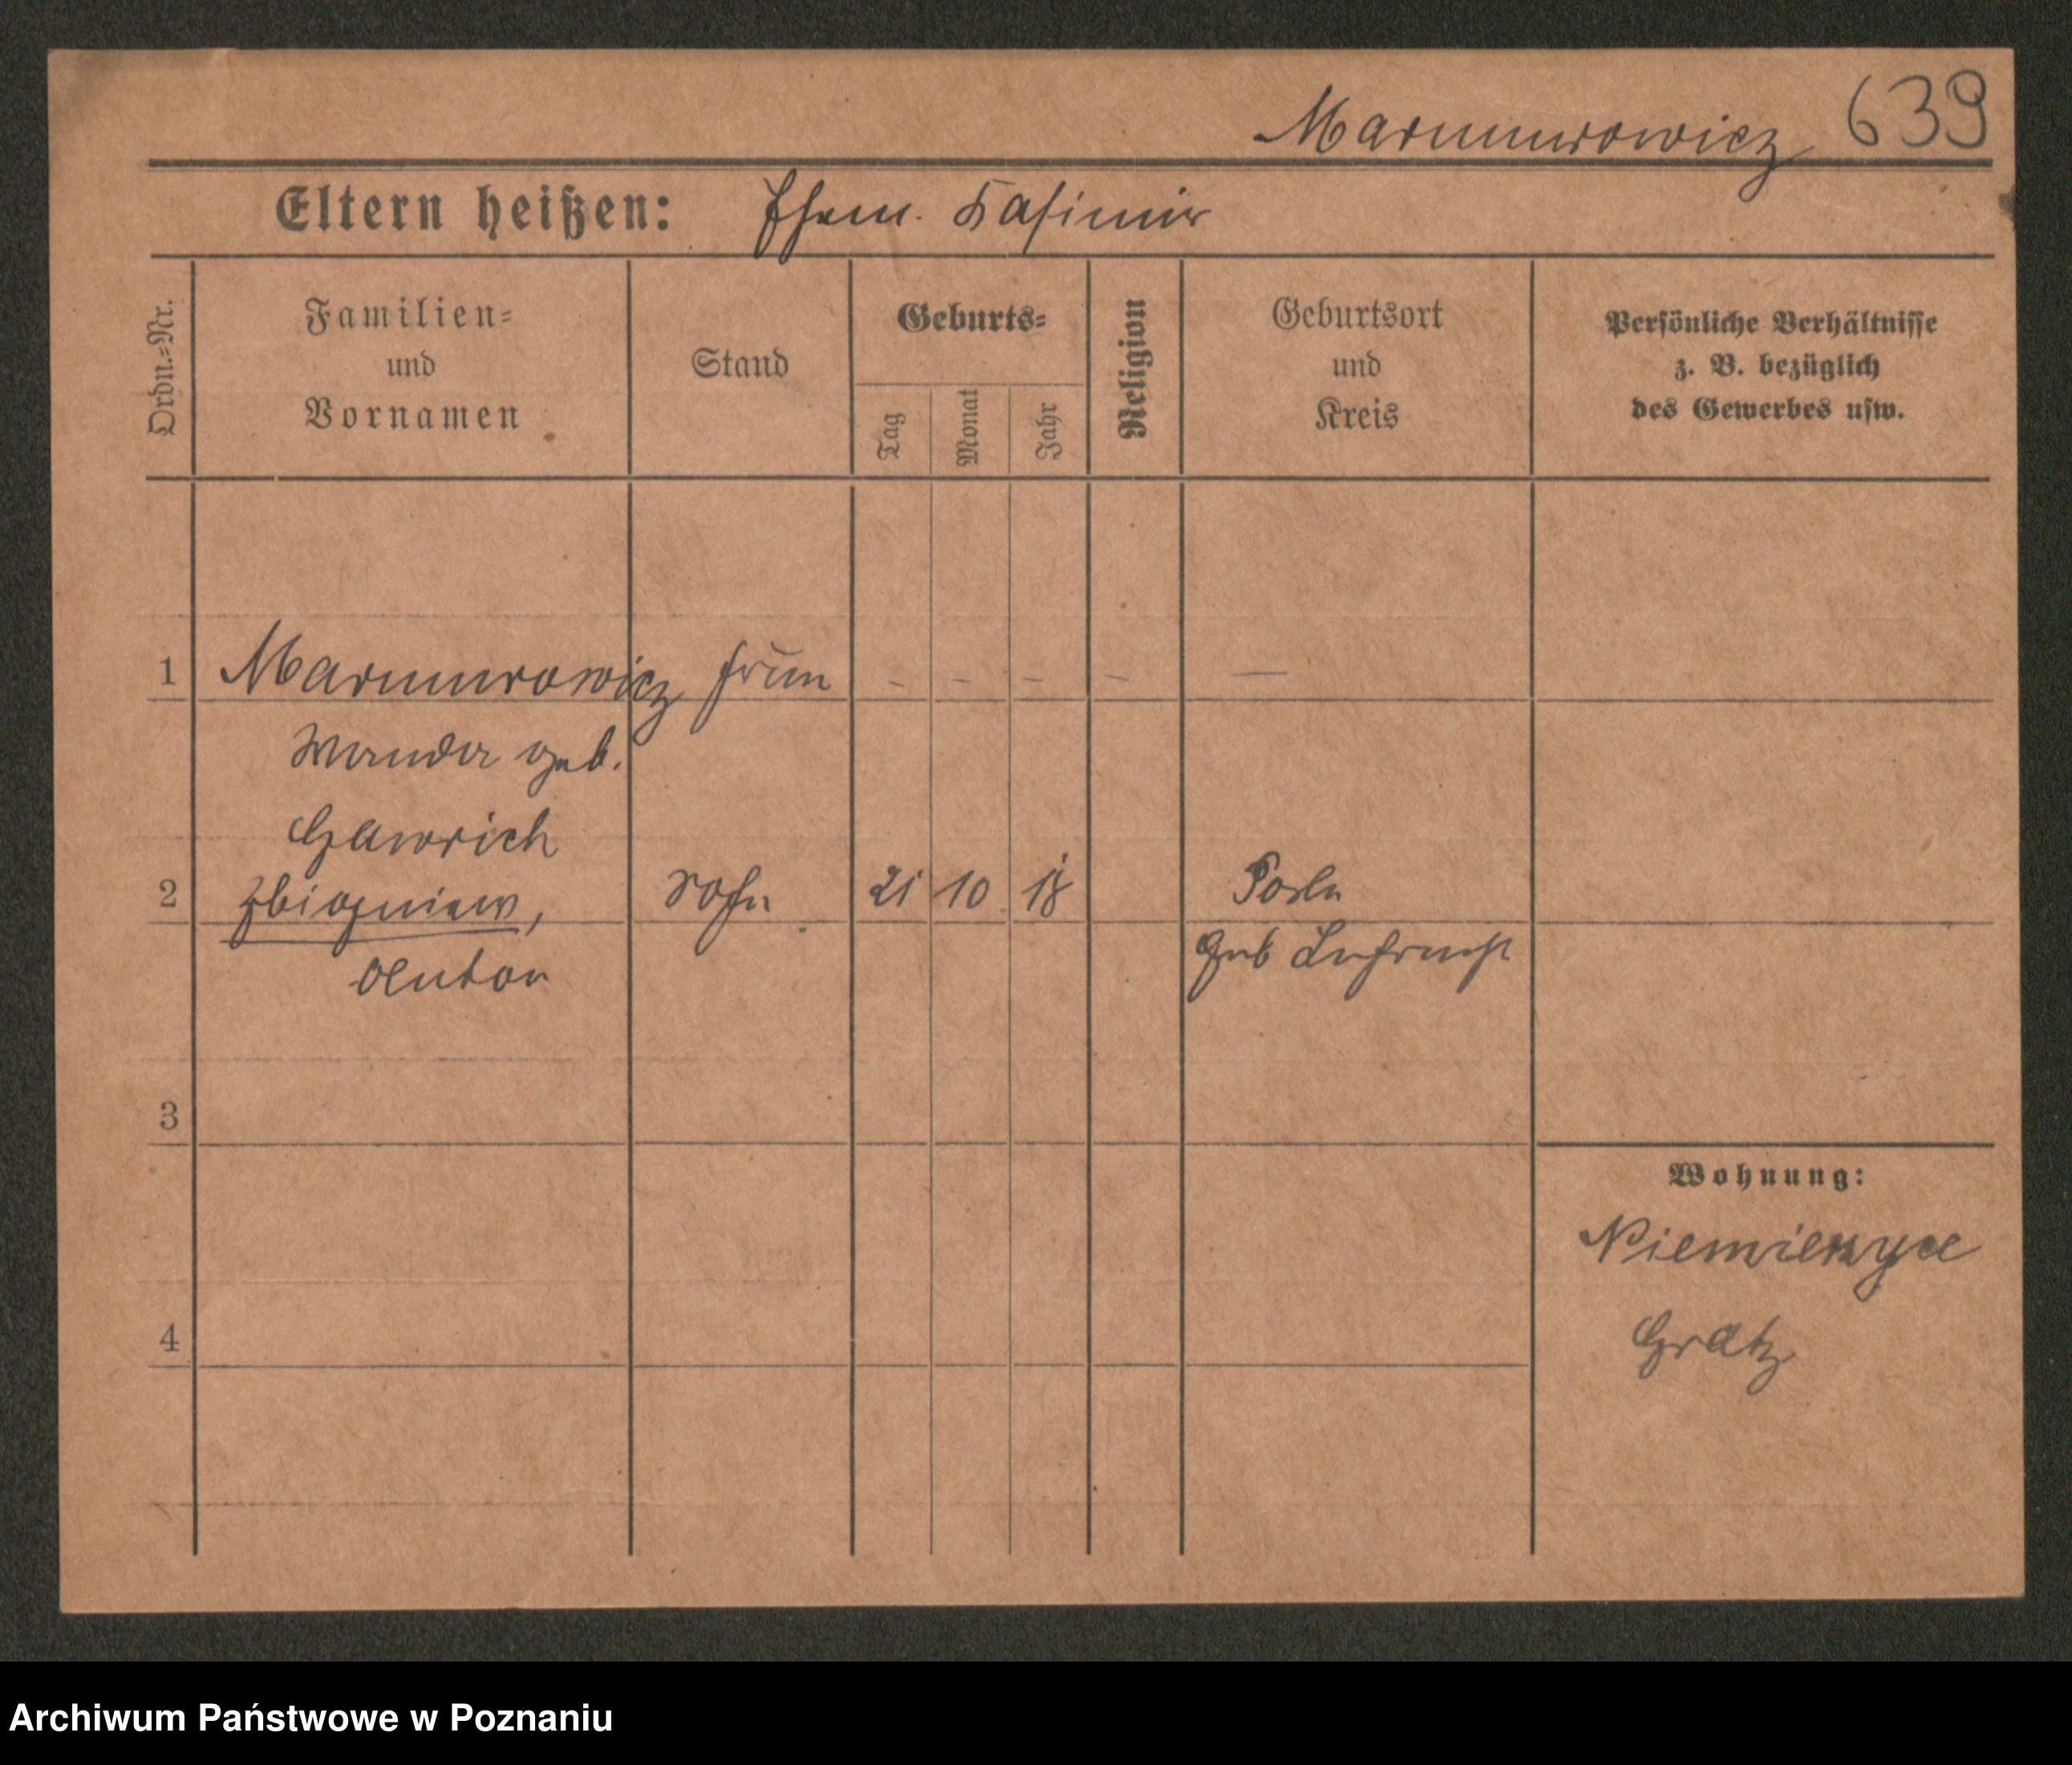 Marunurowicz 639
Eltern heißen: Ehem. Kasimir
Ordn.-Nr.
Familien-
und
Vornamen
Stand
Geburts-
Tag
Monat
Jahr
Religion
Geburtsort
und
Kreis
Persönliche Verhältnisse
z. B. bezüglich
des Gewerbes usw.
1 Marunurowicz Frau - - - - —
Wanda geb.
Gawrich
2 Zbiegniew, Sohn 21 10 18 Posen
Anton Geb
3
Wohnung:
4
Grätz
Archiwum Państwowe w Poznaniu